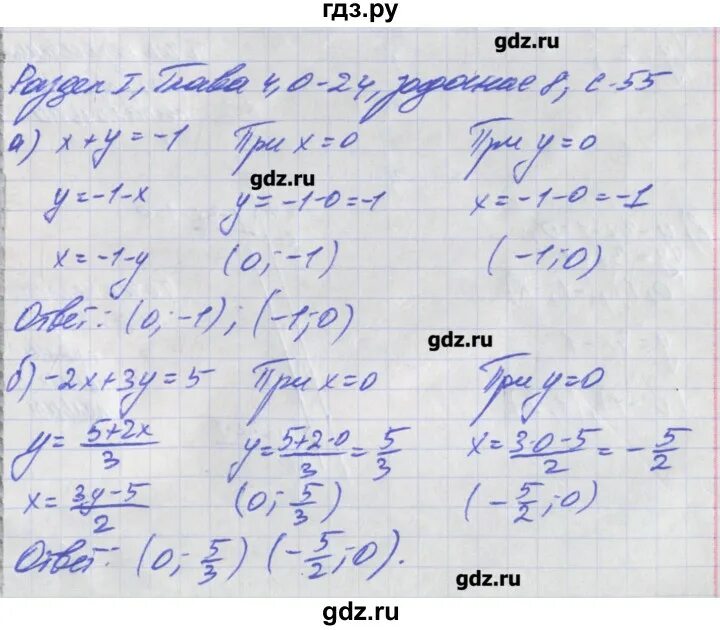 гдз.ру
gdz.ru
Раздел I, Глава 4, О-24, задание 8, с-55
а) x+y=-1 При x=0 При y=0
gdz.ru
y=-1-x y=-1-0=-1 x=-1-0=-1
x=-1-y (0;-1) (-1;0)
Ответ: (0;-1); (-1;0)
gdz.ru
б) -2x+3y=5 При x=0 При y=0
y=\frac{5+2x}{3} y=\frac{5+2·0}{3}=\frac{5}{3} x=\frac{3·0-5}{2}=-\frac{5}{2}
x=\frac{3y-5}{2} (0;\frac{5}{3}) (-\frac{5}{2};0)
Ответ: (0;\frac{5}{3}) (-\frac{5}{2};0).
gdz.ru
gdz.ru